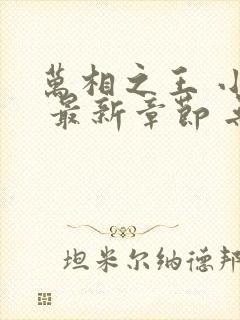 萬相之王
最新章節
坦米尔纳德邦